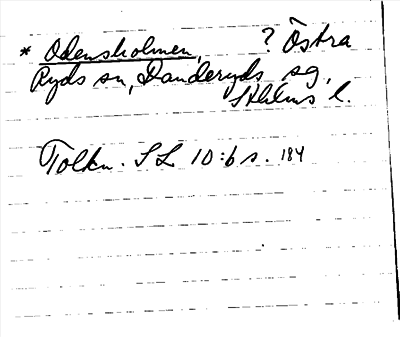 * Odensholmen, ? Östra
Ryds sn, Danderyds sg,
Sthlms l.
Tolkn. SL 10:6 s. 184